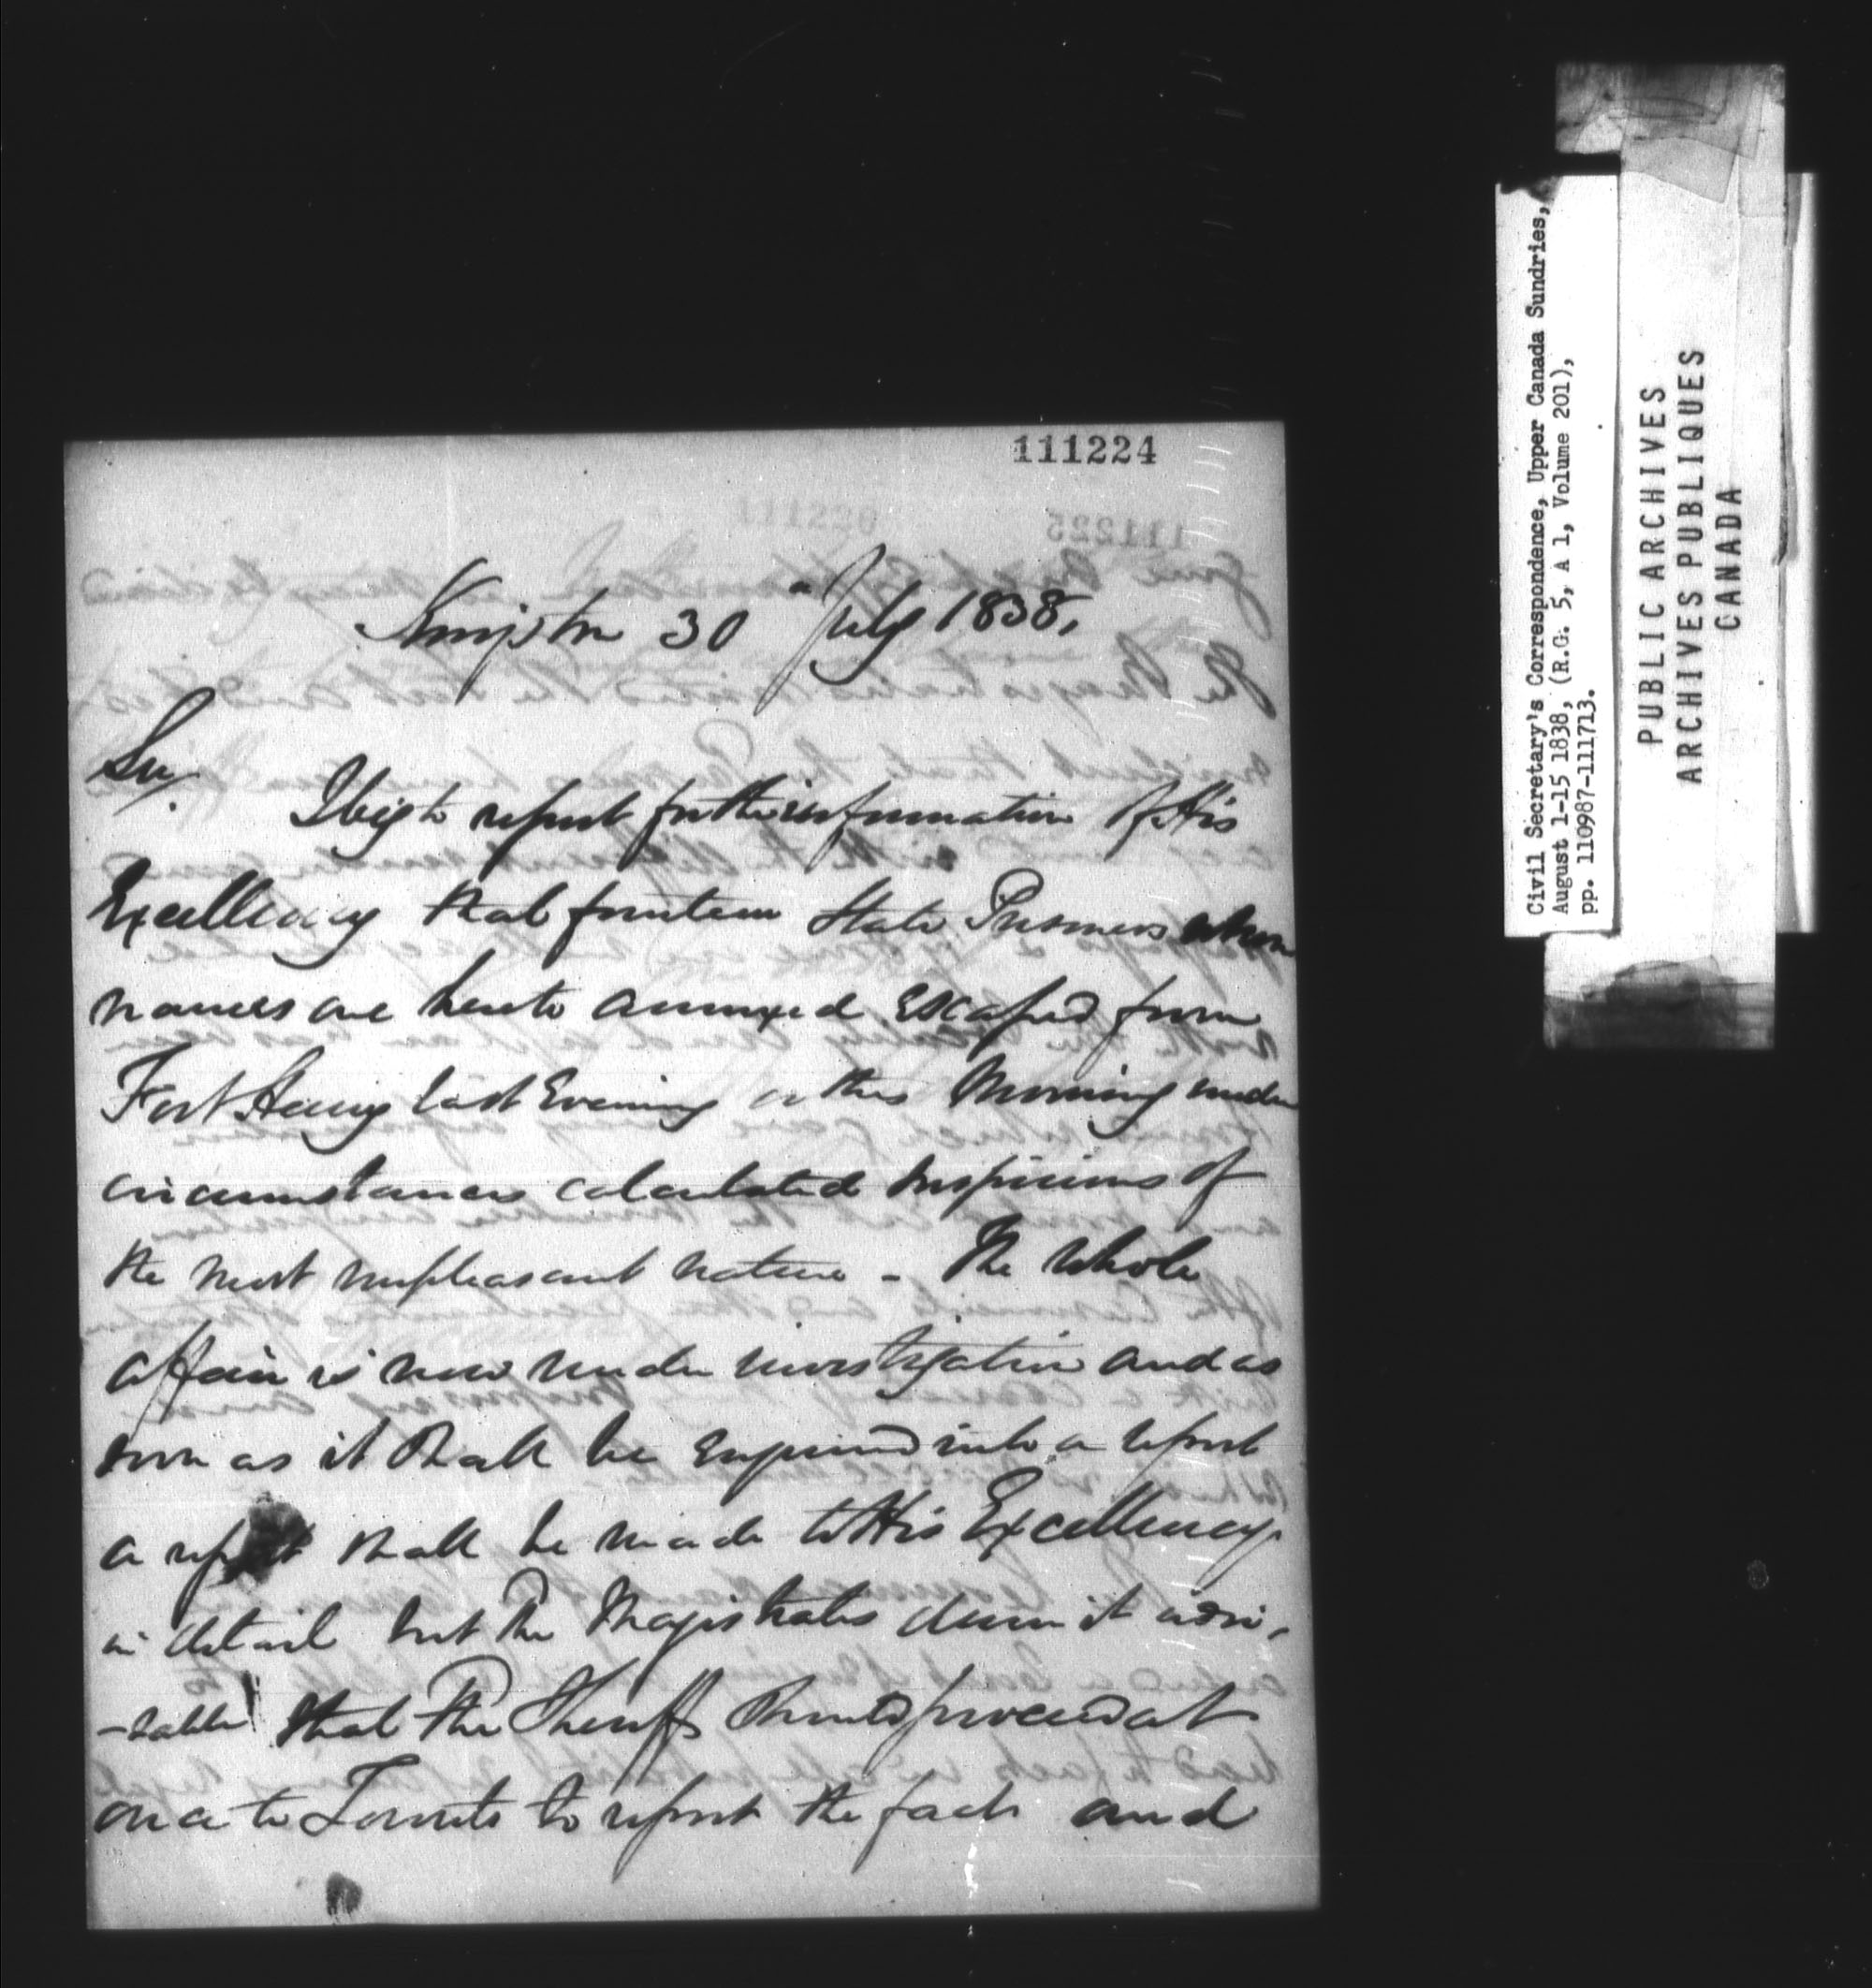 111224
Kingston 30th July 1838.
Sir,
I beg to report for the information of His
Excellency that fourteen State Prisoners whose
names are hereto annexed escaped from
Fort Henry last Evening or this Morning under
circumstances calculated suspicions of
the most unpleasant nature - The whole
affair is now under investigation and as
soon as it shall be enquired into a report
a report shall be made to His Excellency
in detail but the Magistrates deem it advi-
-sable that the Sheriff should proceed at
once to Toronto to report the fact and
Civil Secretary's Correspondence, Upper Canada Sundries,
August 1-15 1838, (R.G. 5, A 1, Volume 201),
pp. 110987-111713.
PUBLIC ARCHIVES
ARCHIVES PUBLIQUES
CANADA